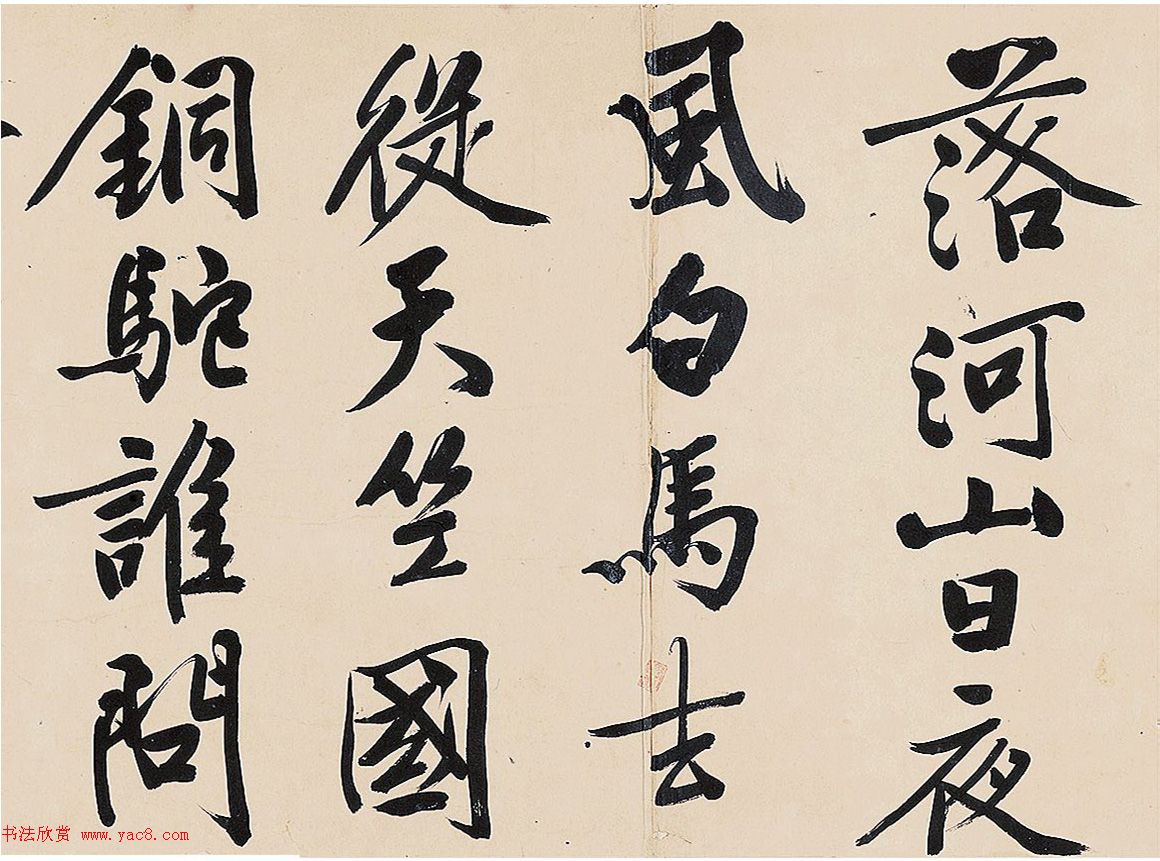 落河山日夜
風白馬去
從天竺國
銅駝誰問
书法欣赏 www.yac8.com